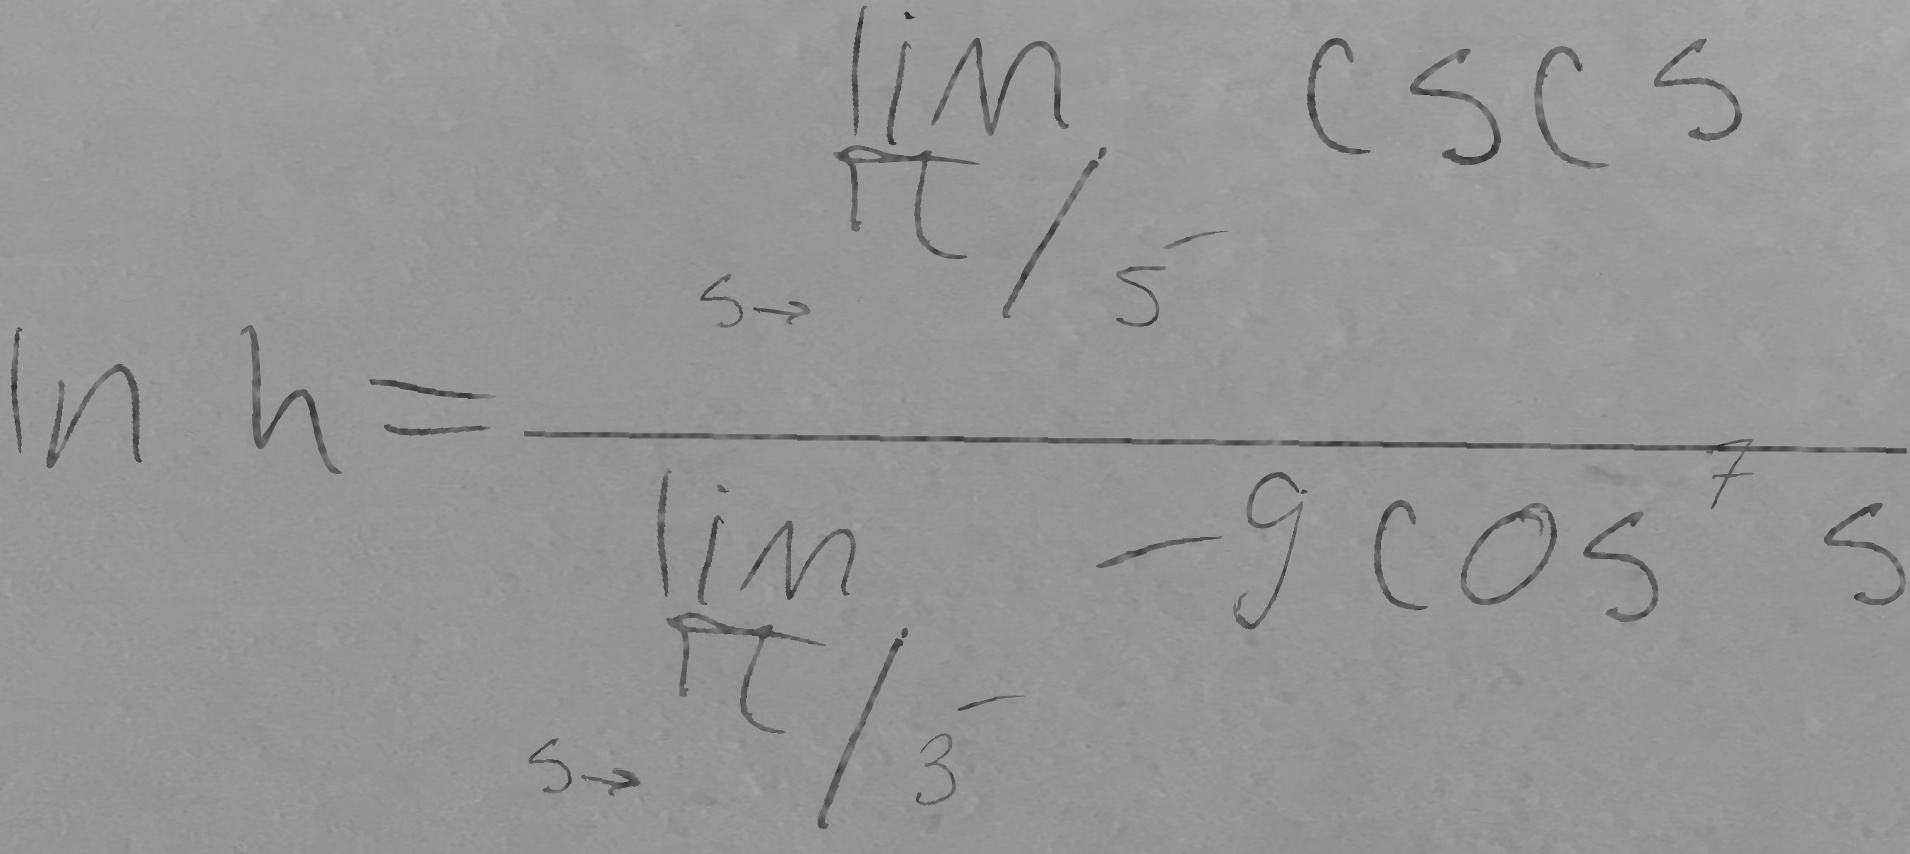 \ln h = \frac{\lim_{s \to \pi/5^-} \csc s}{\lim_{s \to \pi/3^-} -9 \cos^7 s}